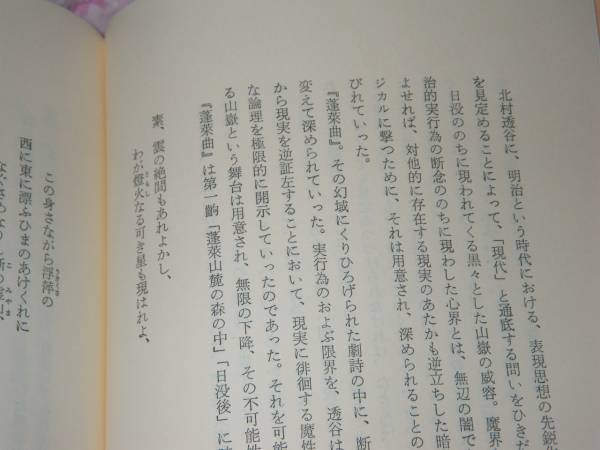 北村透谷に、明治という時代における、表現思想の先鋭
を見定めることによって、「現代」と通底する問いをひきだ
日没ののちに現われてくる黒々とした山嶽の威容。魔界
治的実行為の断念ののちに現わした心界とは、無辺の闇で
よせれば、対他的に存在する現実のあたかも逆立ちした暗
ジカルに撃つために、それは用意され、深められることの
びれていった。
『蓬萊曲』。その幻域にくりひろげられた劇詩の中に、断
変えて深められていった。実行為のおよぶ限界を、透谷は
から現実を逆証左することにおいて、現実に徘徊する魔性
な論理を極限的に開示していったのであった。それを可能
る山嶽という舞台は用意され、無限の下降、その不可能性
『蓬萊曲』は第一齣「蓬萊山麓の森の中」「日没後」に
素、雲の絶間もあれよかし、
わが燈火なる可き星も現はれよ、
この身さながら浮萍の
西に東に漂ふひまのあけくれに